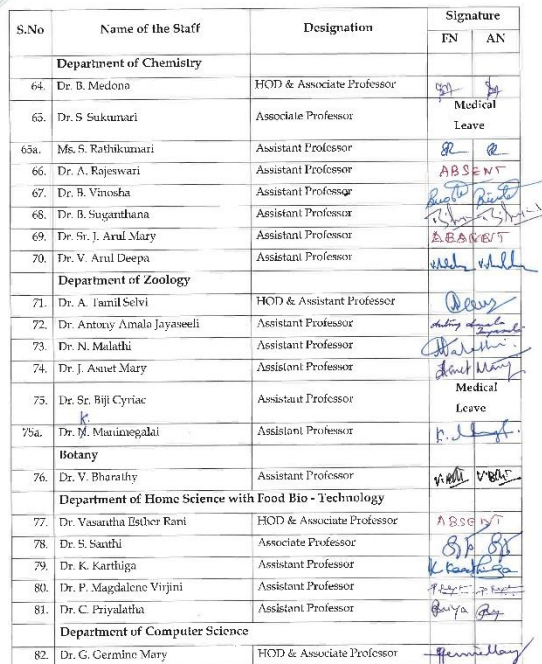 S.No Name of the Staff Designation Signature
FN AN
Department of Chemistry
64. Dr. B. Medona HOD & Associate Professor
65. Dr. S Sukumari Associate Professor Medical Leave
65a. Ms. S. Rathikumari Assistant Professor
66. Dr. A. Rajeswari Assistant Professor ABSENT
67. Dr. B. Vinosha Assistant Professor
68. Dr. B. Suganthana Assistant Professor
69. Dr. Sr. J. Arul Mary Assistant Professor
70. Dr. V. Arul Deepa Assistant Professor
Department of Zoology
71. Dr. A. Tamil Selvi HOD & Assistant Professor
72. Dr. Antony Amala Jayaseeli Assistant Professor Antony Amala
73. Dr. N. Malathi Assistant Professor Malathi.
74. Dr. J. Asnet Mary Assistant Professor Asnet Mary
75. Dr. Sr. Biji Cyriac Assistant Professor Medical Leave
K.
75a. Dr. N. Manimegalai Assistant Professor
Botany
76. Dr. V. Bharathy Assistant Professor
Department of Home Science with Food Bio - Technology
77. Dr. Vasantha Esther Rani HOD & Associate Professor ABSENT
78. Dr. S. Santhi Associate Professor
79. Dr. K. Karthiga Assistant Professor K Karthiga
80. Dr. P. Magdalene Virjini Assistant Professor
81. Dr. C. Priyalatha Assistant Professor Priya
Department of Computer Science
82. Dr. G. Germine Mary HOD & Associate Professor